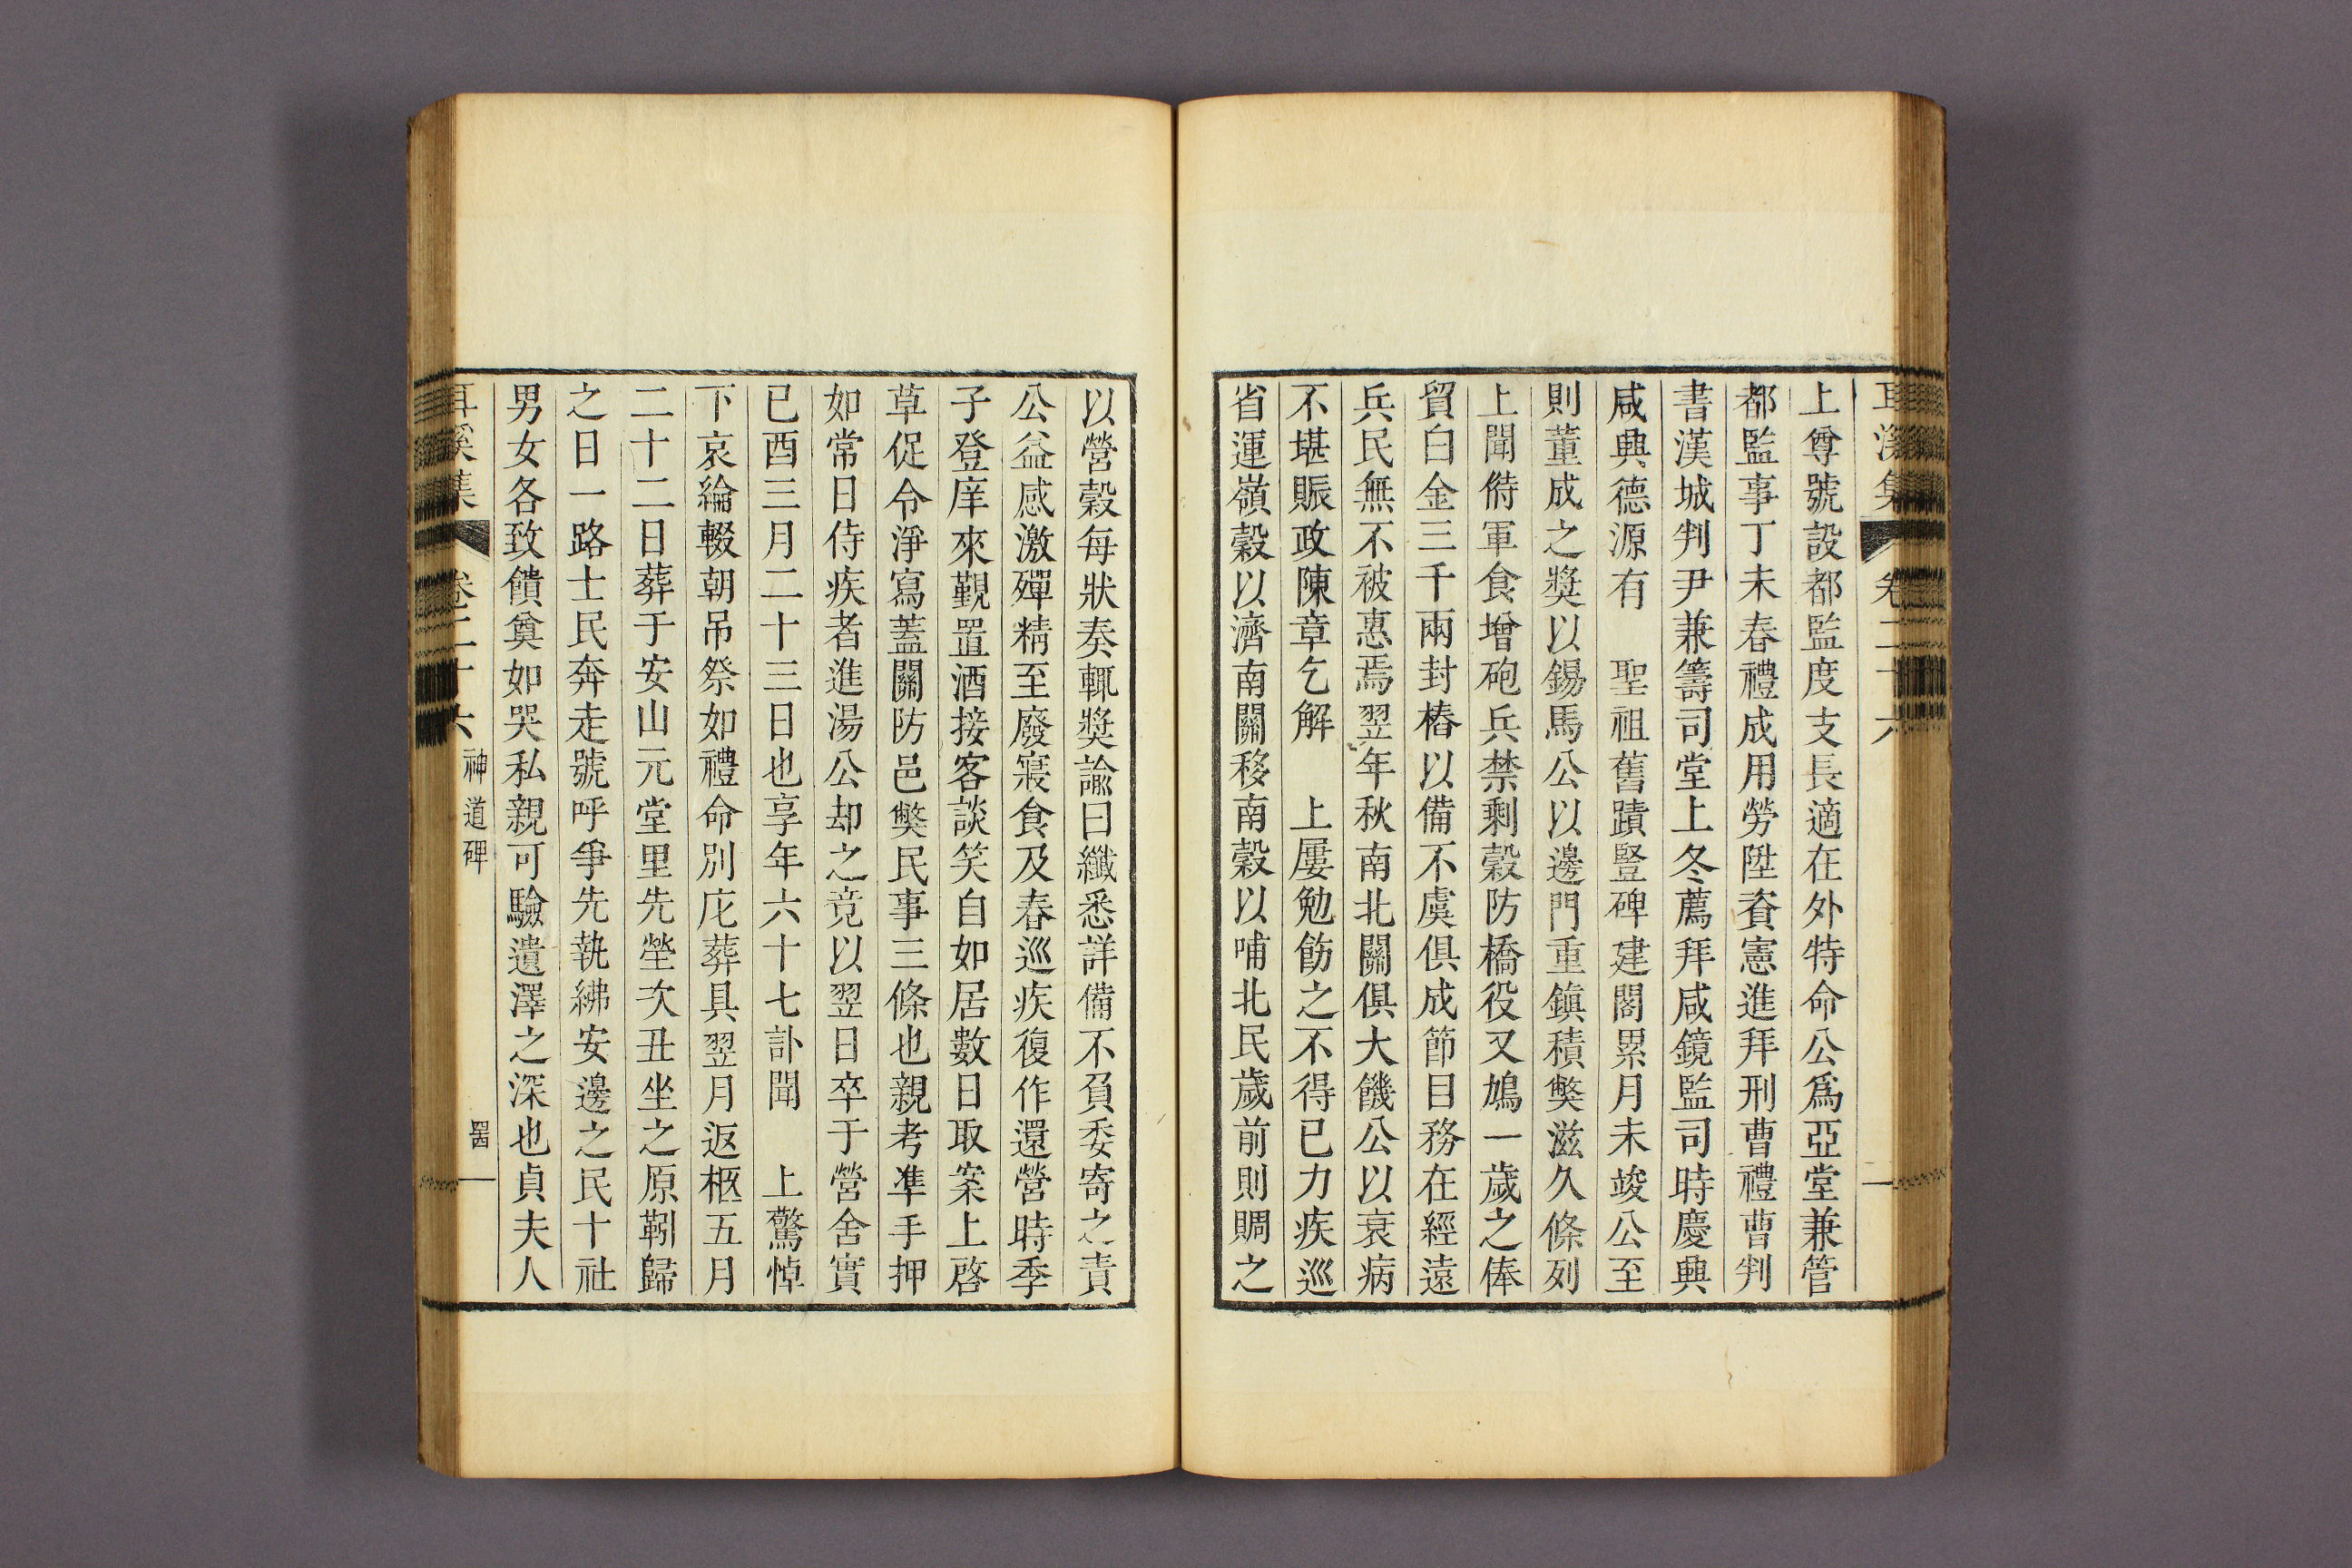 耳溪集 卷二十六
上尊號設都監度支長適在外特命公爲亞堂兼管
都監事丁未春禮成用勞陞資憲進拜刑曹禮曹判
書漢城判尹兼籌司堂上冬薦拜咸鏡監司時慶興
咸興德源有 聖祖舊蹟豎碑建閣累月未竣公至
則董成之獎以錫馬公以邊門重鎭積獘滋久條列
上聞偫軍食增砲兵禁剩穀防橋役又鳩一歲之俸
貿白金三千兩封樁以備不虞俱成節目務在經遠
兵民無不被惠焉翌年秋南北關俱大饑公以衰病
不堪賑政陳章乞解 上屢勉飭之不得已力疾巡
省運嶺穀以濟南關移南穀以哺北民歲前則賙之
以營穀每狀奏輒獎諭曰纖悉詳備不負委寄之責
公益感激殫精至廢寢食及春巡疾復作還營時季
子登庠來覲置酒接客談笑自如居數日取案上啓
草促令淨寫蓋關防邑獘民事三條也親考準手押
如常日侍疾者進湯公却之竟以翌日卒于營舍實
已酉三月二十三日也享年六十七訃聞 上驚悼
下哀綸輟朝吊祭如禮命別庀葬具翌月返柩五月
二十二日葬于安山元堂里先塋次丑坐之原靷歸
之日一路士民奔走號呼爭先執紼安邊之民十社
男女各致饋奠如哭私親可驗遺澤之深也貞夫人
耳溪集 卷二十六 神道碑